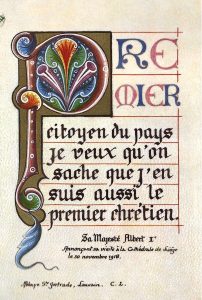 PRE
MIER
citoyen du pays
je veux qu'on
sache que j'en
suis aussi le
premier chrétien.
Sa Majesté Albert Ier
Annonçant sa visite à la Cathédrale de Liége
le 30 novembre 1918.
Abbaye Ste Gertrude, Louvain. C. 2.